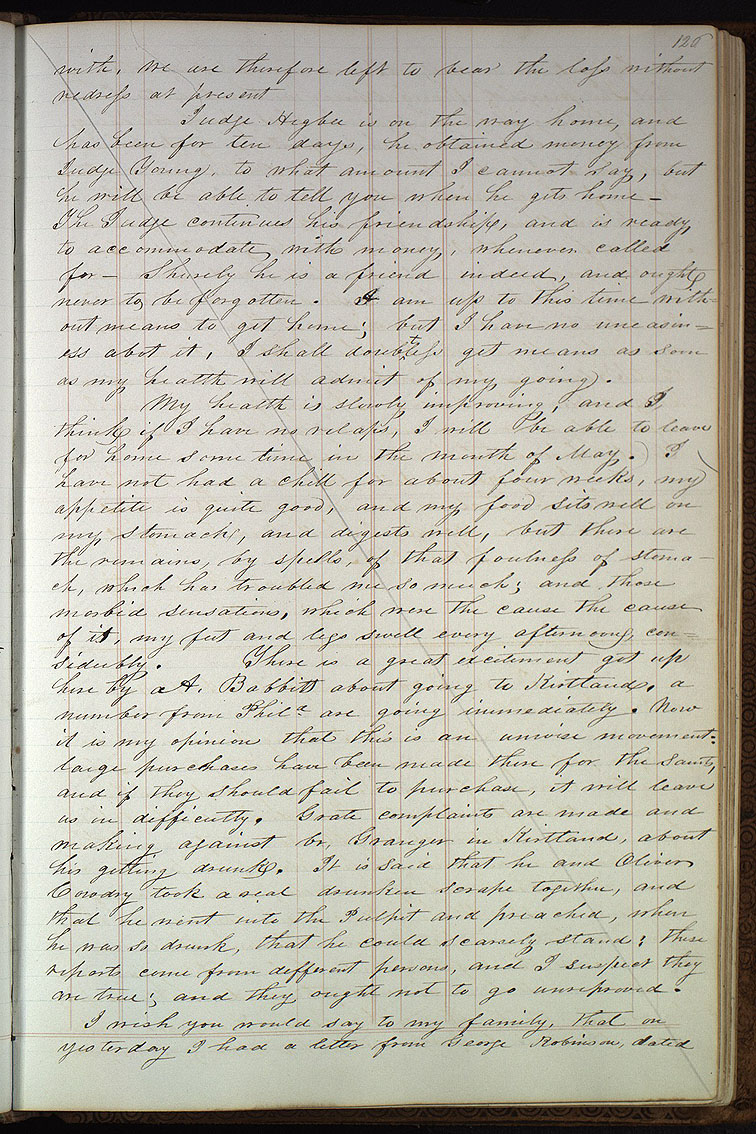 126
with, we are therefore left to bear the loss without
redress at present
Judge Higbee is on the way home, and
has been for ten days, he obtained money from
Judge Young, to what amount I cannot say, but
he will be able to tell you when he gets home—
The Judge continues his friendship, and is ready
to accommodate with money, whenever called
for— Thereby he is a friend indeed, and ought
never to be forgotten. I am up to this time with=
out means to get home; but I have no uneasin=
ess abot it, I shall doubtless get means as soon
as my health will admit of my going.
My health is slowly improving, and I,
think if I have no relaps, I will be able to leave
for home some time in the month of May. I
have not had a chill for about four weeks, my
appetite is quite good, and my food sits well on
my stomach, and digests well, but there are
the remains, by spells, of that foulness of stoma-
ch, which has troubled me so much; and those
morbid sensations, which were the cause the cause
of it, my feet and legs swell every afternoon, con-
siderbly. There is a great excitement got up
here by A. Babbitt about going to Kirtland. a
number from Phila are going immediately. Now
it is my opinion that this is an unwise movement:
large purchases have been made there for the Saints,
and if they should fail to purchase, it will leave
us in difficulty. Grate complaints are made and
making against br, Granger in Kirtland, about
his getting drunk. It is said that he and Oliver
Cowdry took a real drunken scrape together, and
that he went into the Pulpit and preached, when
he was so drunk, that he could scarsely stand; these
reports come from different persons, and I suspect they
are true; and they ought not to go unreproved.
I wish you would say to my family, that on
yesterday I had a letter from George Robinson, dated